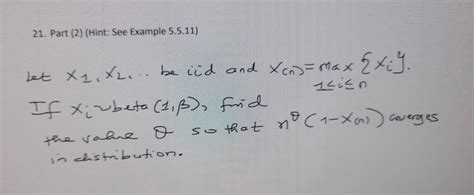 21. Part (2) (Hint: See Example 5.5.11)
Let X1, X2, ... be iid and X(n) = max {Xi}.
1≤i≤n
If Xi ~ beta (1, β), find
the value θ so that n^θ (1 - X(n)) converges
in distribution.